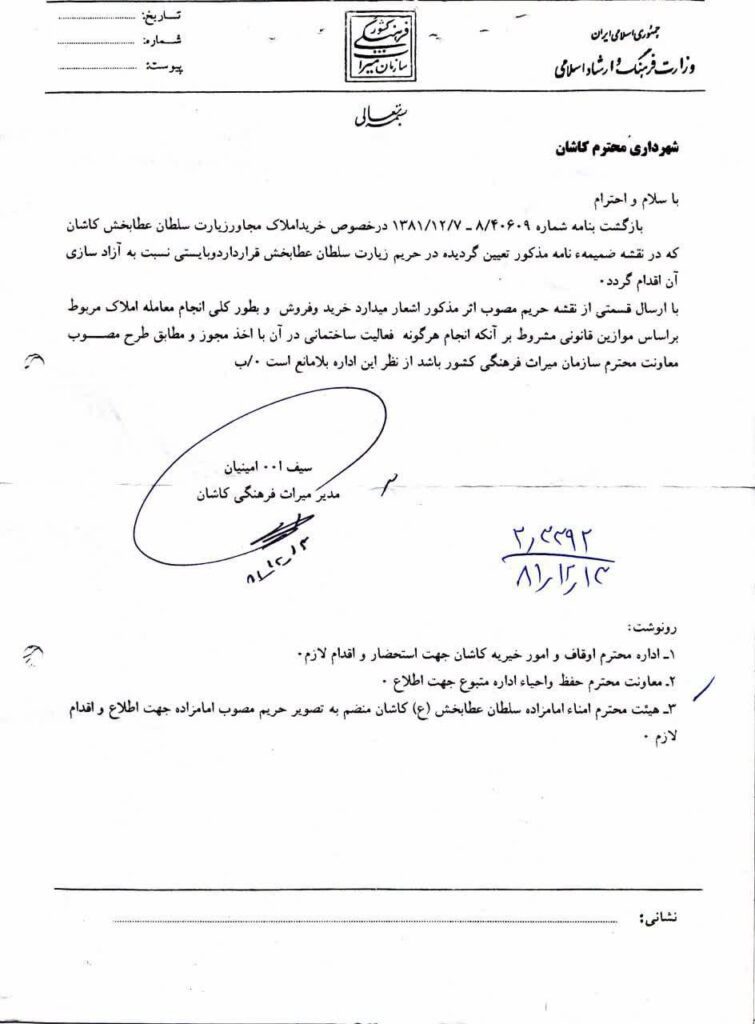 جمهوری اسلامی ایران
وزارت فرهنگ و ارشاد اسلامی
سازمان میراث فرهنگی کشور
تاریخ: ....................
شماره: ....................
پیوست: ....................
بسمه تعالی
شهرداری محترم کاشان
با سلام و احترام
بازگشت بنامه شماره ۸/۴۰۶۰۹ ـ ۱۳۸۱/۱۲/۷ درخصوص خریداملاک مجاورزیارت سلطان عطابخش کاشان
که در نقشه ضمیمهء نامه مذکور تعیین گردیده در حریم زیارت سلطان عطابخش قرارداردوبایستی نسبت به آزاد سازی
آن اقدام گردد۰
با ارسال قسمتی از نقشه حریم مصوب اثر مذکور اشعار میدارد خرید وفروش و بطور کلی انجام معامله املاک مربوط
براساس موازین قانونی مشروط بر آنکه انجام هرگونه فعالیت ساختمانی در آن با اخذ مجوز و مطابق طرح مصـــوب
معاونت محترم سازمان میراث فرهنگی کشور باشد از نظر این اداره بلامانع است ۰/ب
سیف ا۰۰ امینیان
مدیر میراث فرهنگی کاشان
۸۱_۱۲_۱۳
۲٫۳۳۹۲
۸۱٫۱۲٫۱۳
رونوشت:
۱ـ اداره محترم اوقاف و امور خیریه کاشان جهت استحضار و اقدام لازم۰
۲ـ معاونت محترم حفظ واحیاء اداره متبوع جهت اطلاع ۰
۳ـ هیئت محترم امناء امامزاده سلطان عطابخش (ع) کاشان منضم به تصویر حریم مصوب امامزاده جهت اطلاع و اقدام
لازم ۰
نشانی: ....................